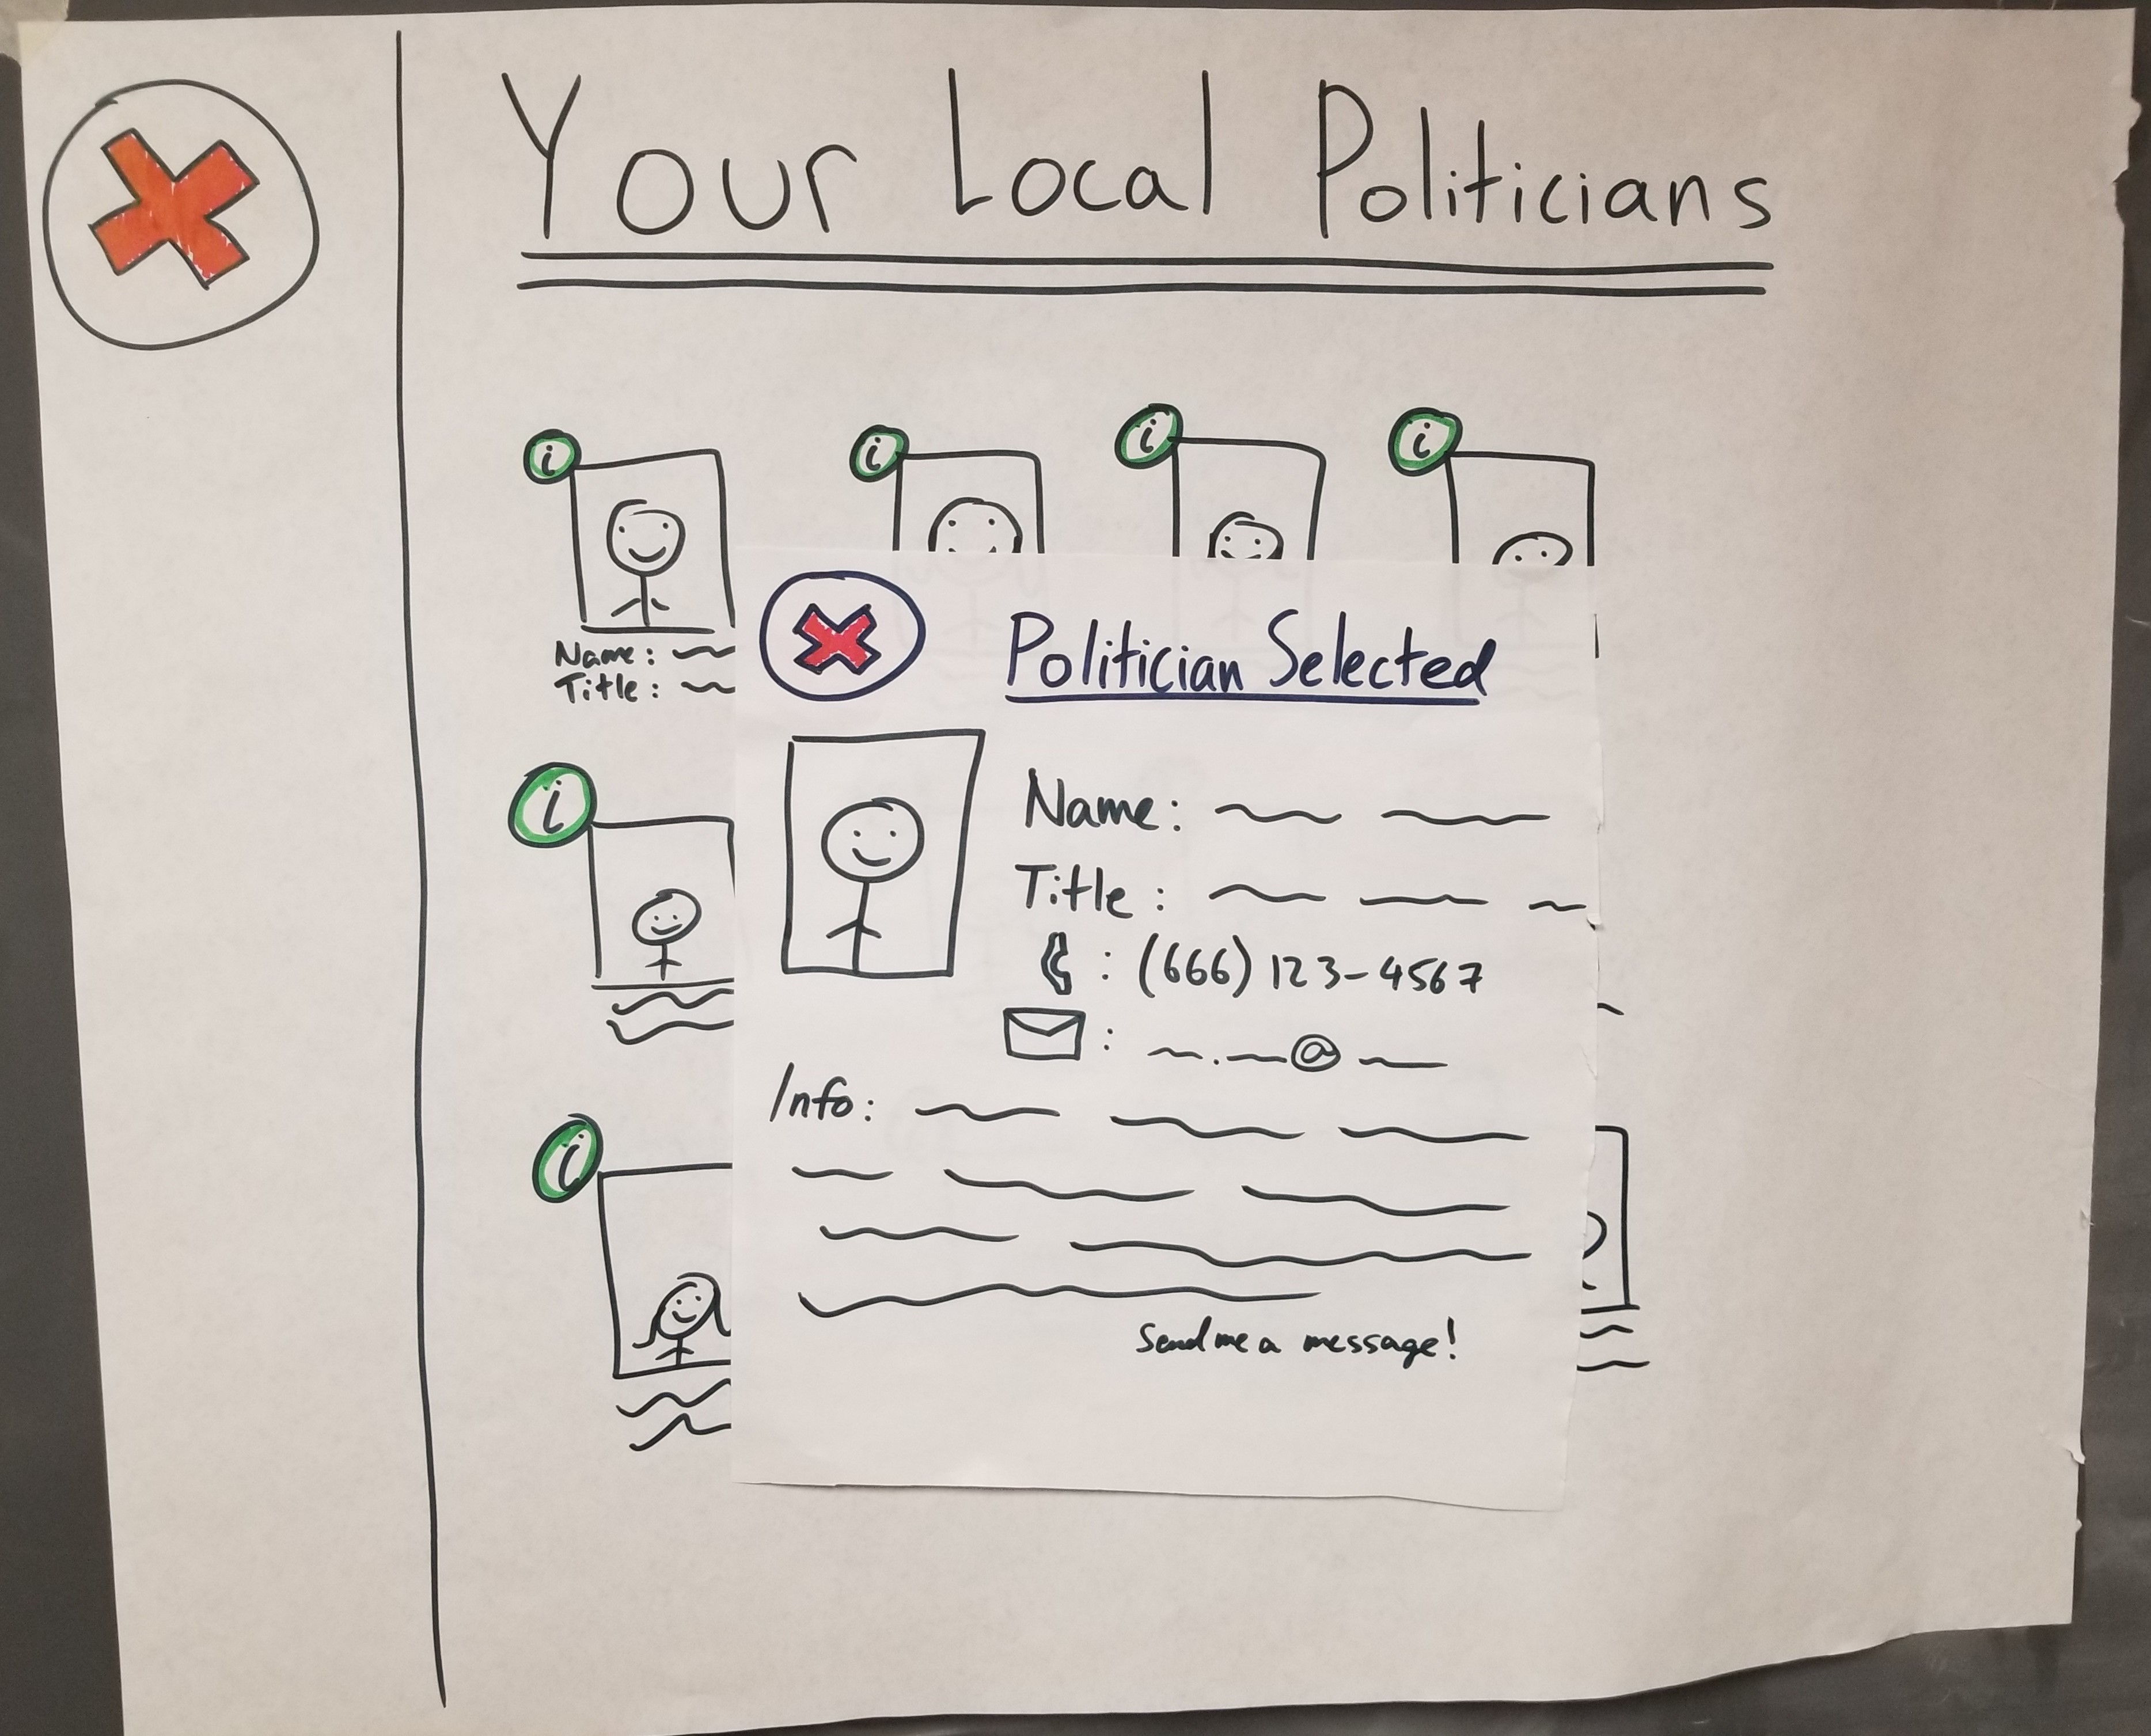 Your Local Politicians
i
i
i
i
Name:
Title:
i
i
Politician Selected
Name:
Title:
: (666) 123-4567
: . @
Info:
Send me a message!